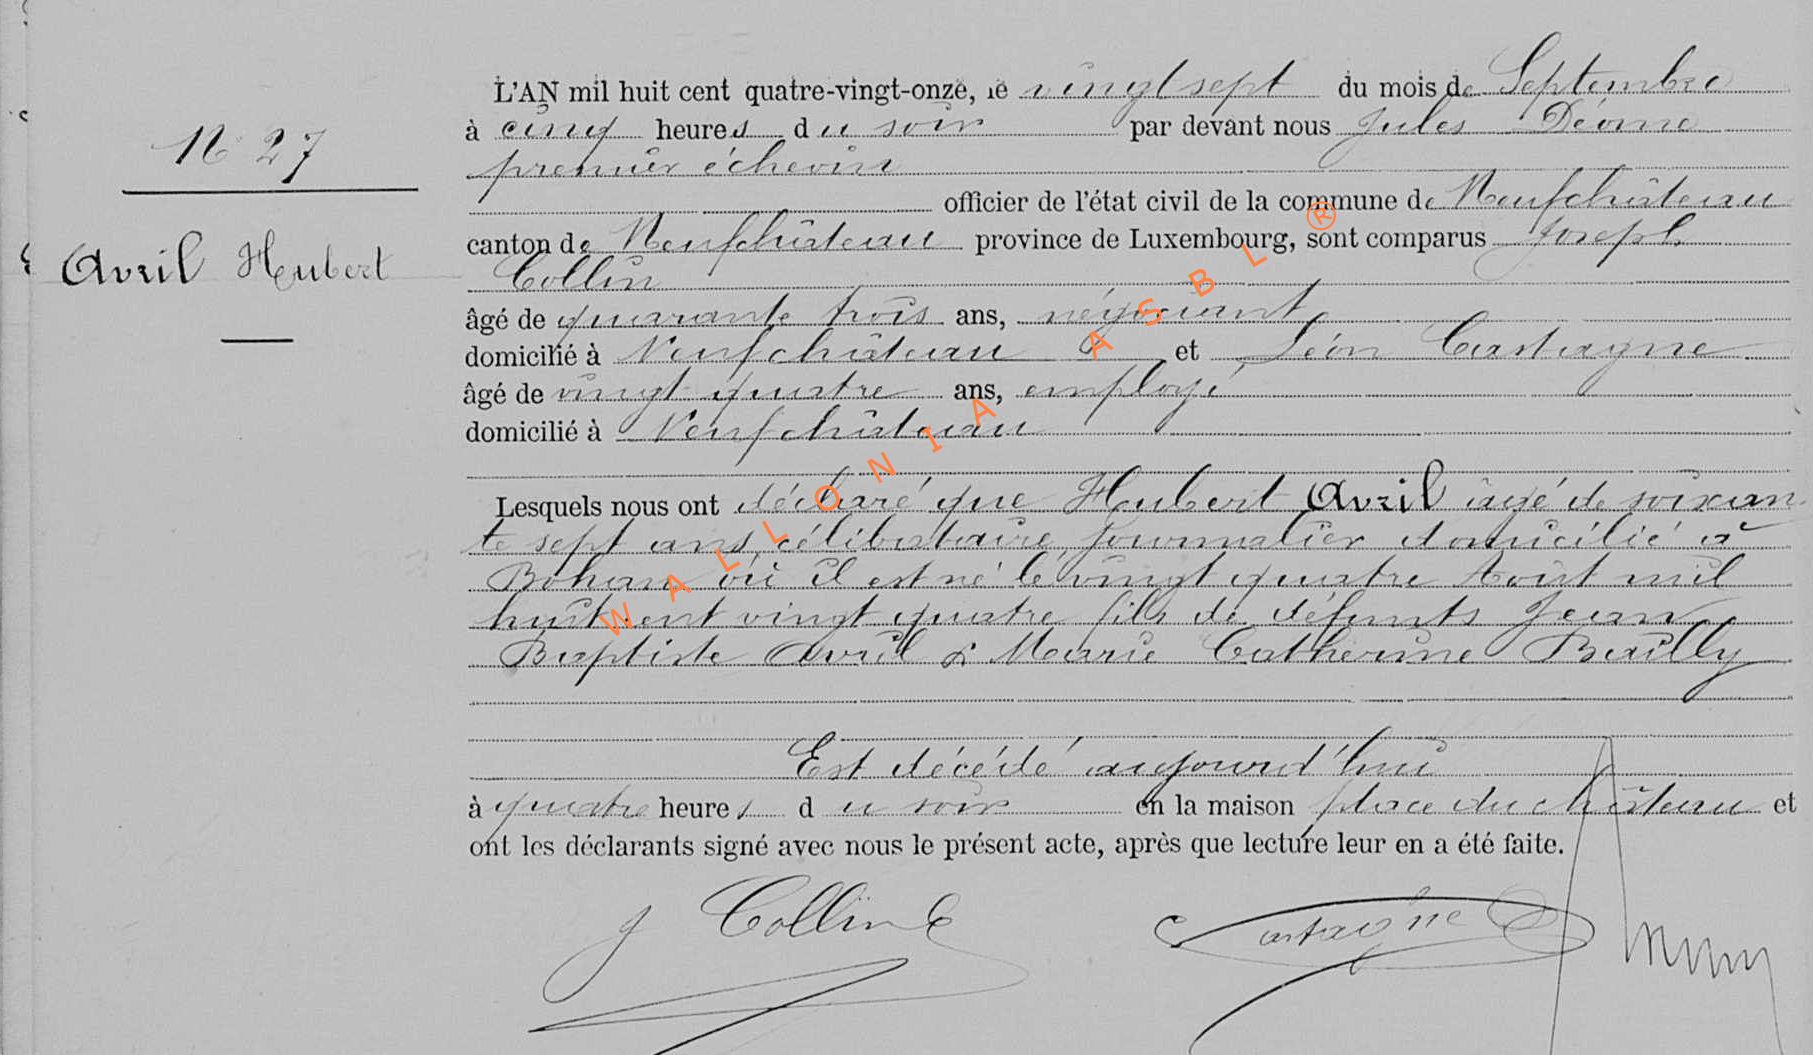 N° 27
Avril Hubert
L'AN mil huit cent quatre-vingt-onze, le vingt sept du mois de Septembre
à cinq heures du soir par devant nous Jules Déome
premier échevin
officier de l'état civil de la commune de Neufchâteau
canton de Neufchâteau province de Luxembourg, sont comparus Joseph
Collin
âgé de quarante trois ans, négociant
domicilié à Neufchâteau et Léon Castagne
âgé de vingt quatre ans, employé
domicilié à Neufchâteau
Lesquels nous ont déclaré que Hubert Avril âgé de soixan
te sept ans, célibataire, journalier domicilié à
Bohan où il est né le vingt quatre Août mil
huit cent vingt quatre fils de défunts Jean
Baptiste Avril & Marie Catherine Bailly
Est décédé aujourd'hui
à quatre heures du soir en la maison place du château et
ont les déclarants signé avec nous le présent acte, après que lecture leur en a été faite.
J Collin Castagne
WALLONIA ASBL ®